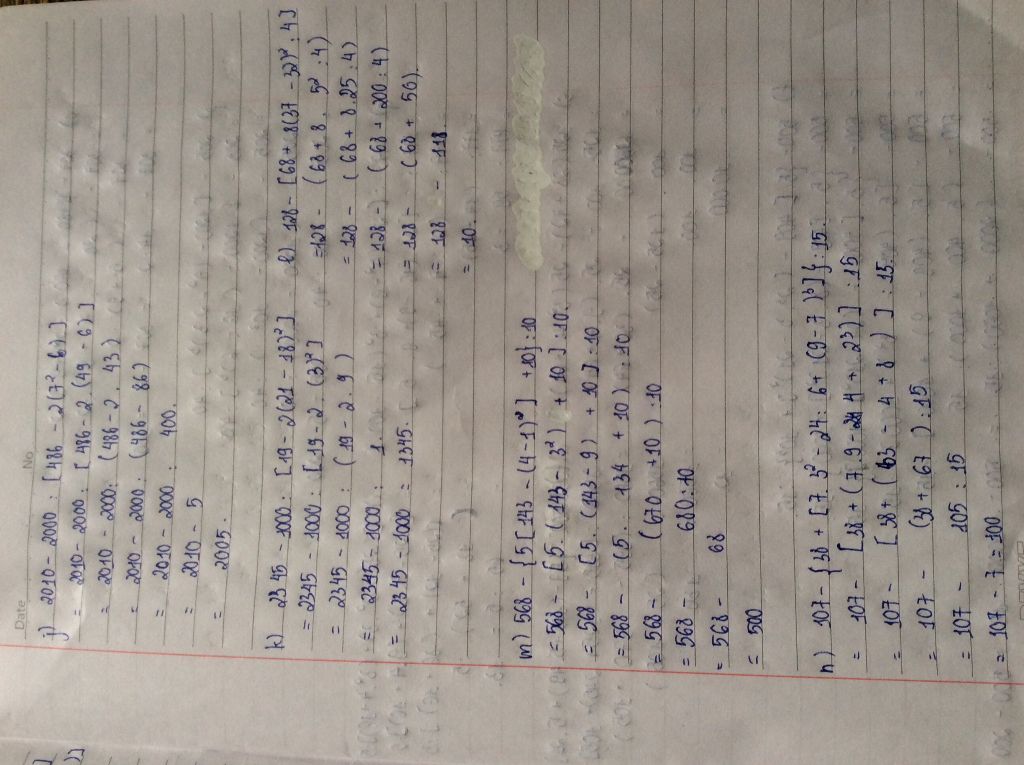 Date No
j) 2010 - 2000 : [486 - 2(7² - 6)]
= 2010 - 2000 : [486 - 2 (49 - 6)]
= 2010 - 2000 : (486 - 2 . 43)
= 2010 - 2000 : (486 - 86)
= 2010 - 2000 : 400.
= 2010 - 5
= 2005.
k) 2345 - 1000 : [19 - 2(21 - 18)²]
= 2345 - 1000 : [19 - 2 . (3²]
= 2345 - 1000 : (19 - 2 . 9)
= 2345 - 1000 : 1.
= 2345 - 1000 = 1345.
l) 128 - [68 + 8(37 - 32)² : 4]
= 128 - (68 + 8 . 5² : 4)
= 128 - (68 + 8 . 25 : 4)
= 128 - (68 + 200 : 4)
= 128 - (68 + 50).
= 128 - 118
= 10.
m) 568 - {5 [143 - (4 - 1)²] + 10} : 10
= 568 - [5 (143 - 3²) + 10] : 10.
= 568 - [5 . (143 - 9) + 10] : 10
= 568 - (5 . 134 + 10) : 10.
= 568 - (670 + 10) : 10
= 568 - 680 : 10
= 568 - 68
= 500
n) 107 - {38 + [7 3² - 24 : 6 + (9 - 7)³]} : 15.
= 107 - [38 + (7 9 - 4 + 2³)] : 15
= 107 - [38 + (63 - 4 + 8)] : 15.
= 107 - (38 + 67) : 15
= 107 - 105 : 15
= 107 - 7 = 100